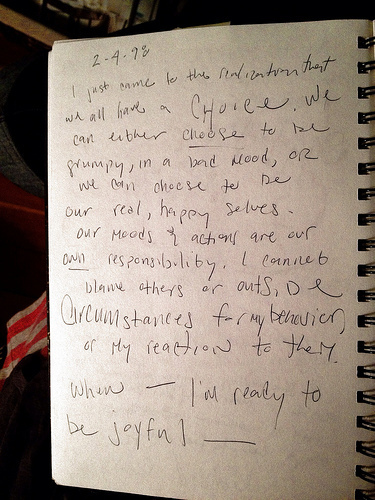 2-4-98
I just came to the realization that
we all have a CHOICE. We
can either choose to be
grumpy, in a bad mood, or
we can choose to be
our real, happy selves.
Our moods & actions are our
own responsibility. I cannot
blame others or outside
Circumstances for my behavior,
or my reaction to them.
When — I'm ready to
be joyful —